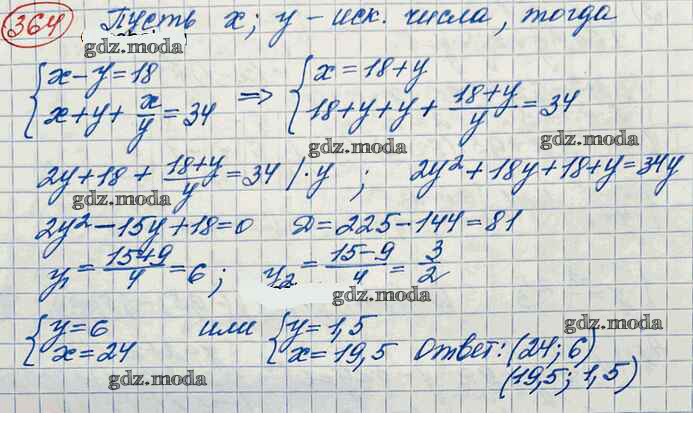 364 Пусть x; y - иск. числа, тогда
gdz.moda
{ x - y = 18 => { x = 18 + y
x + y + x/y = 34    18 + y + y + (18+y)/y = 34
gdz.moda gdz.moda
2y + 18 + (18+y)/y = 34 /·y ; 2y² + 18y + 18 + y = 34y
gdz.moda gdz.moda
2y² - 15y + 18 = 0    D = 225 - 144 = 81
y₁ = (15+9)/4 = 6 ; y₂ = (15-9)/4 = 3/2
gdz.moda
{ y = 6 или { y = 1,5
x = 24    x = 19,5 Ответ: (24; 6)
gdz.moda
(19,5; 1,5)
gdz.moda